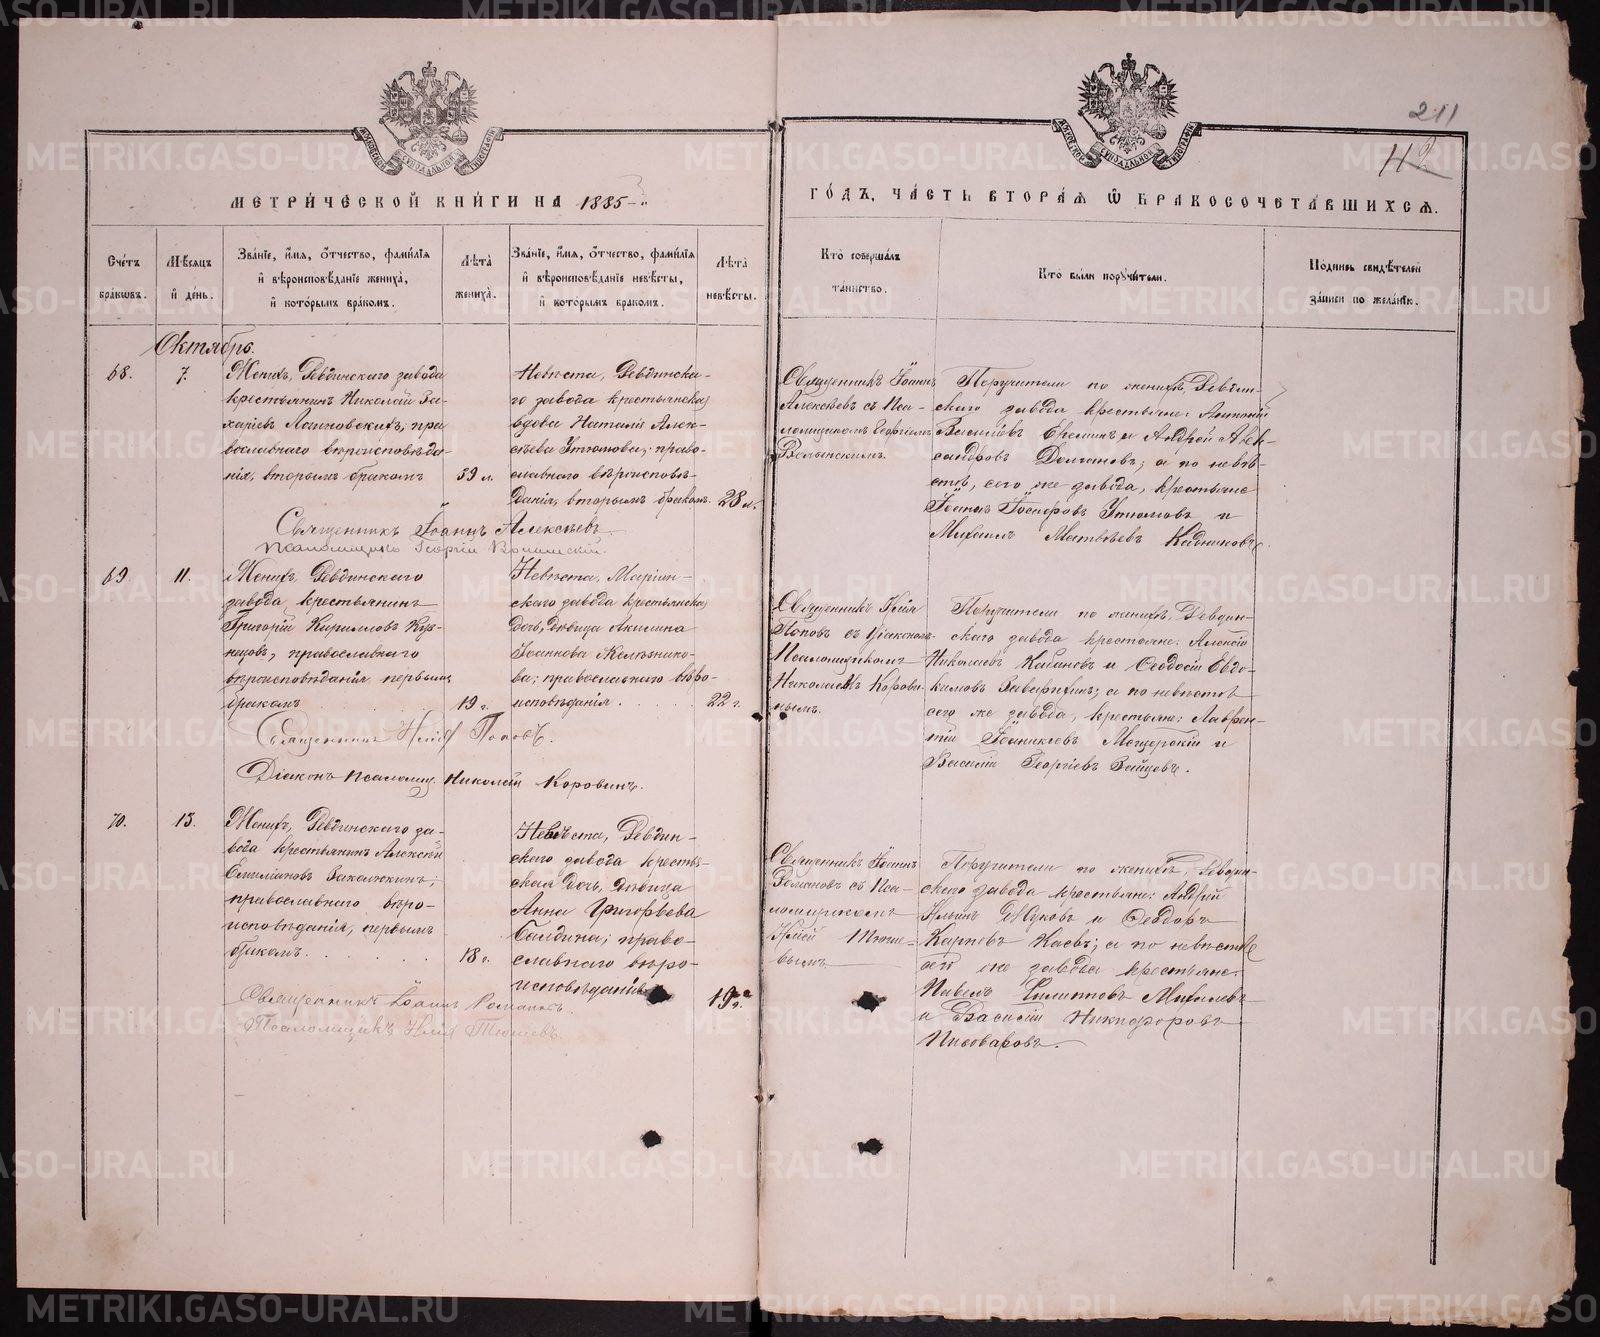 211
112
МЕТРИ́ЧЕСКОЙ КНИ́ГИ НА 1885
ГО́ДЪ, ЧА́СТЬ ВТОРА́Я Ѿ БРАКОСОЧЕТА́ВШИХСЯ.
Сче́тъ бра́ковъ.
Мѣ́сяцъ и́ де́нь.
Зва́нїе, и́мя, о́тчество, фами́лїя и́ вѣроисповѣ́данїе жениха̀, и́ кото́рымъ бра́комъ.
Лѣ́та жениха̀.
Зва́нїе, и́мя, о́тчество, фами́лїя и́ вѣроисповѣ́данїе невѣ́сты, и́ кото́рымъ бра́комъ.
Лѣ́та невѣ́сты.
Кто̀ соверша́лъ таи́нство.
Кто̀ бы́ли поручи́тели.
По́дпись свидѣ́телей за́писи по жела́нїю.
Октябрь.
68.
7.
Женихъ, Ревдинскаго завода
крестьянинъ Николай За-
харіевъ
пра
вославнаго вѣроисповѣда-
нія, вторымъ бракомъ
39 л.
Невѣста, Ревдинска-
го завода крестьянска
вдова Наталія Алек-
сѣева Утюмова, право-
славнаго вѣроисповѣ-
данія, вторымъ бракомъ.
28 л.
Священникъ Іоаннъ
Алексѣевъ съ Пса-
ломщикомъ Георгіемъ
Волынскимъ.
Поручители по женихѣ, Ревдин-
скаго завода крестьяне: Антоній
Василіевъ Ереминъ и Андрей Алек-
сандровъ Долгановъ; а по невѣ-
стѣ, сего же завода, крестьяне
Іоаннъ Іосифовъ Утюмовъ и
Михаилъ Матвѣевъ Кадниковъ.
Священникъ Іоаннъ Алексѣевъ
Псаломщикъ Георгій Волынскій.
69.
11.
Женихъ Ревдинскаго
завода, крестьянинъ
Григорій Кирилловъ Куз-
нецовъ, православнаго
вѣроисповѣданія первымъ
бракомъ
19 г.
Невѣста, Маріин-
скаго завода крестьянска
дочь, дѣвица Акилина
Іоаннова Желѣзнико-
ва; православнаго вѣро-
исповѣданія.
22 г.
Священникъ Илія
Поповъ съ Діакономъ-
Псаломщикомъ
Николаемъ Корови-
нымъ.
Поручители по женихѣ, Ревдин-
скаго завода крестьяне: Алексій
Николаевъ Кабановъ и Ѳеодосій Евдо-
кимовъ а по невѣстѣ
сего же завода, крестьяне: Лаврен-
тій Іоанникіевъ Мещерскій и
Василій Георгіевъ Зайцевъ.
Священникъ Илія Поповъ.
Діаконъ Псаломщ. Николай Коровинъ.
70.
13.
Женихъ, Ревдинскаго за-
вода крестьянинъ Алексѣй
Емиліановъ
православнаго вѣро-
исповѣданія, первымъ
бракомъ.
18 л.
Невѣста, Ревдин-
скаго завода кресть-
ская дочь, дѣвица
Анна Григорьева
Балдина; право-
славнаго вѣро-
исповѣданія
19 л.
Священникъ Іоаннъ
Романовъ съ Пса-
ломщикомъ
Иліей Тюше-
вымъ
Поручители по женихѣ, Ревдин-
скаго завода крестьяне: Андрей
Ильинъ Жуковъ и Ѳеодоръ
Карповъ Каевъ; а по невѣстѣ
сего же завода крестьяне:
Павелъ Филипповъ Михалевъ
и Василій Никифоровъ
Пивоваровъ.
Священникъ Іоаннъ Романовъ.
Псаломщикъ Илія Тюшевъ.
METRIKI.GASO-URAL.RU